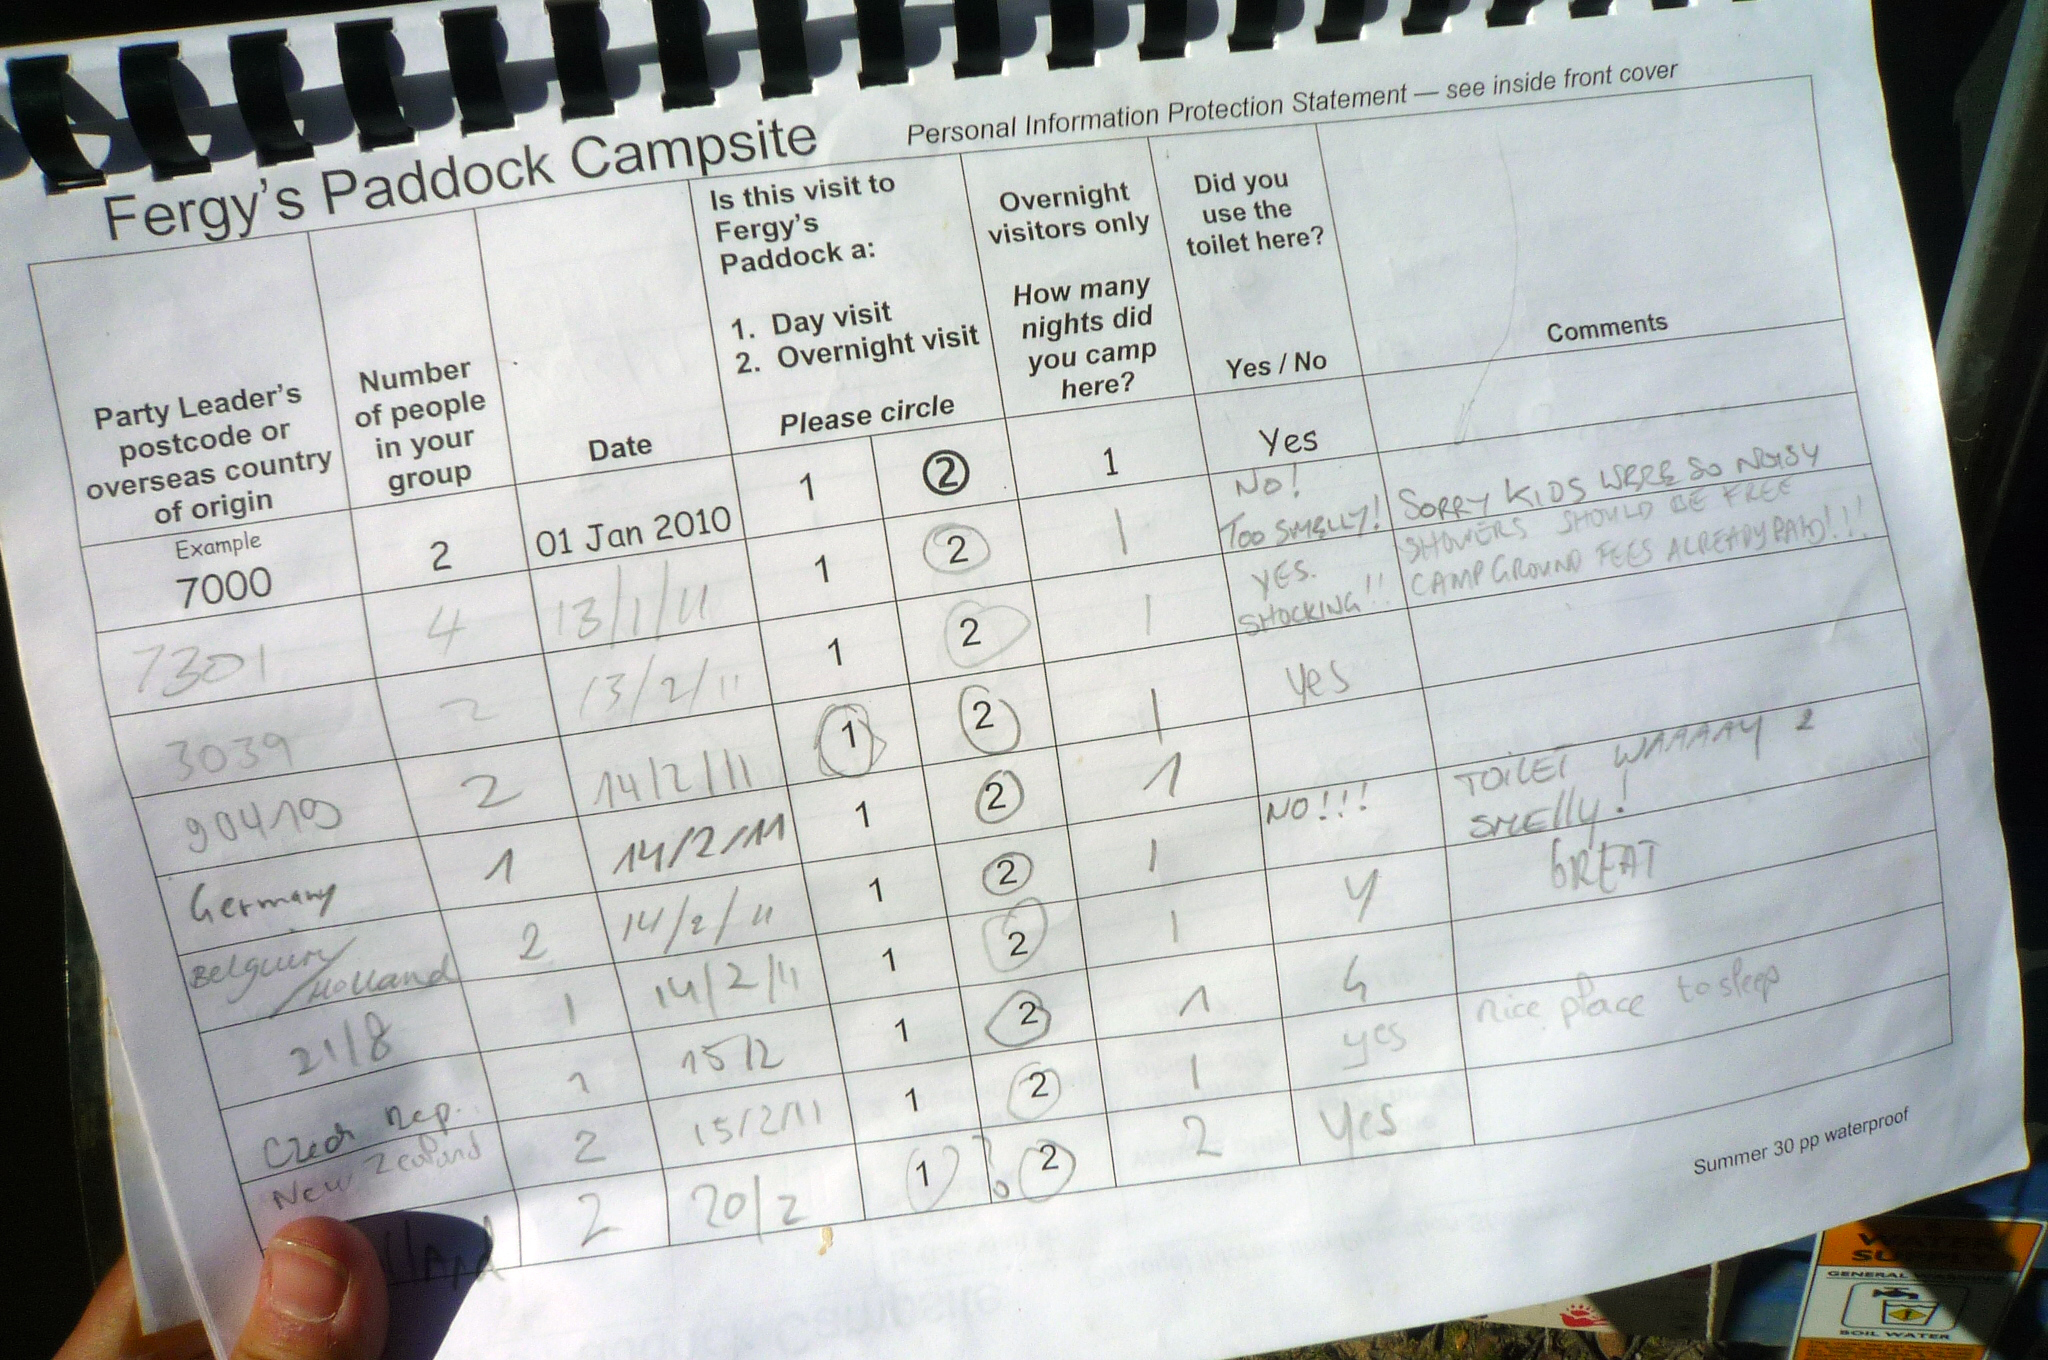 Fergy's Paddock Campsite
Personal Information Protection Statement — see inside front cover
Party Leader's
postcode or
overseas country
of origin
Number
of people
in your
group
Date
Is this visit to
Fergy's
Paddock a:
1. Day visit
2. Overnight visit
Please circle
Overnight
visitors only
How many
nights did
you camp
here?
Did you
use the
toilet here?
Yes / No
Comments
Example
7000 2 01 Jan 2010 1 2 1 Yes
7301 4 13/1/11 1 2 1 NO!
TOO SMELLY! SORRY KIDS WERE SO NOISY
3039 2 13/2/11 1 2 1 YES.
SHOCKING!! SHOWERS SHOULD BE FREE
CAMPGROUND FEES ALREADY PAID!!!
90419 2 14/2/11 1 2 1 yes
Germany 1 14/2/11 1 2 1
BELguim/Holland 2 14/2/11 1 2 1 NO!!! TOiLET WAAAAY 2
SMElly!
21/8 1 14/2/11 1 2 1 y GREAT
Czech Rep. 1 15/2 1 2 1 y
New Zealand 2 15/2/11 1 2 1 yes nice place to sleep
2 20/2 1 ? 2 2 yes
Summer 30 pp waterproof
WATER
SUPPLY
GENERAL WASHING
BOIL WATER